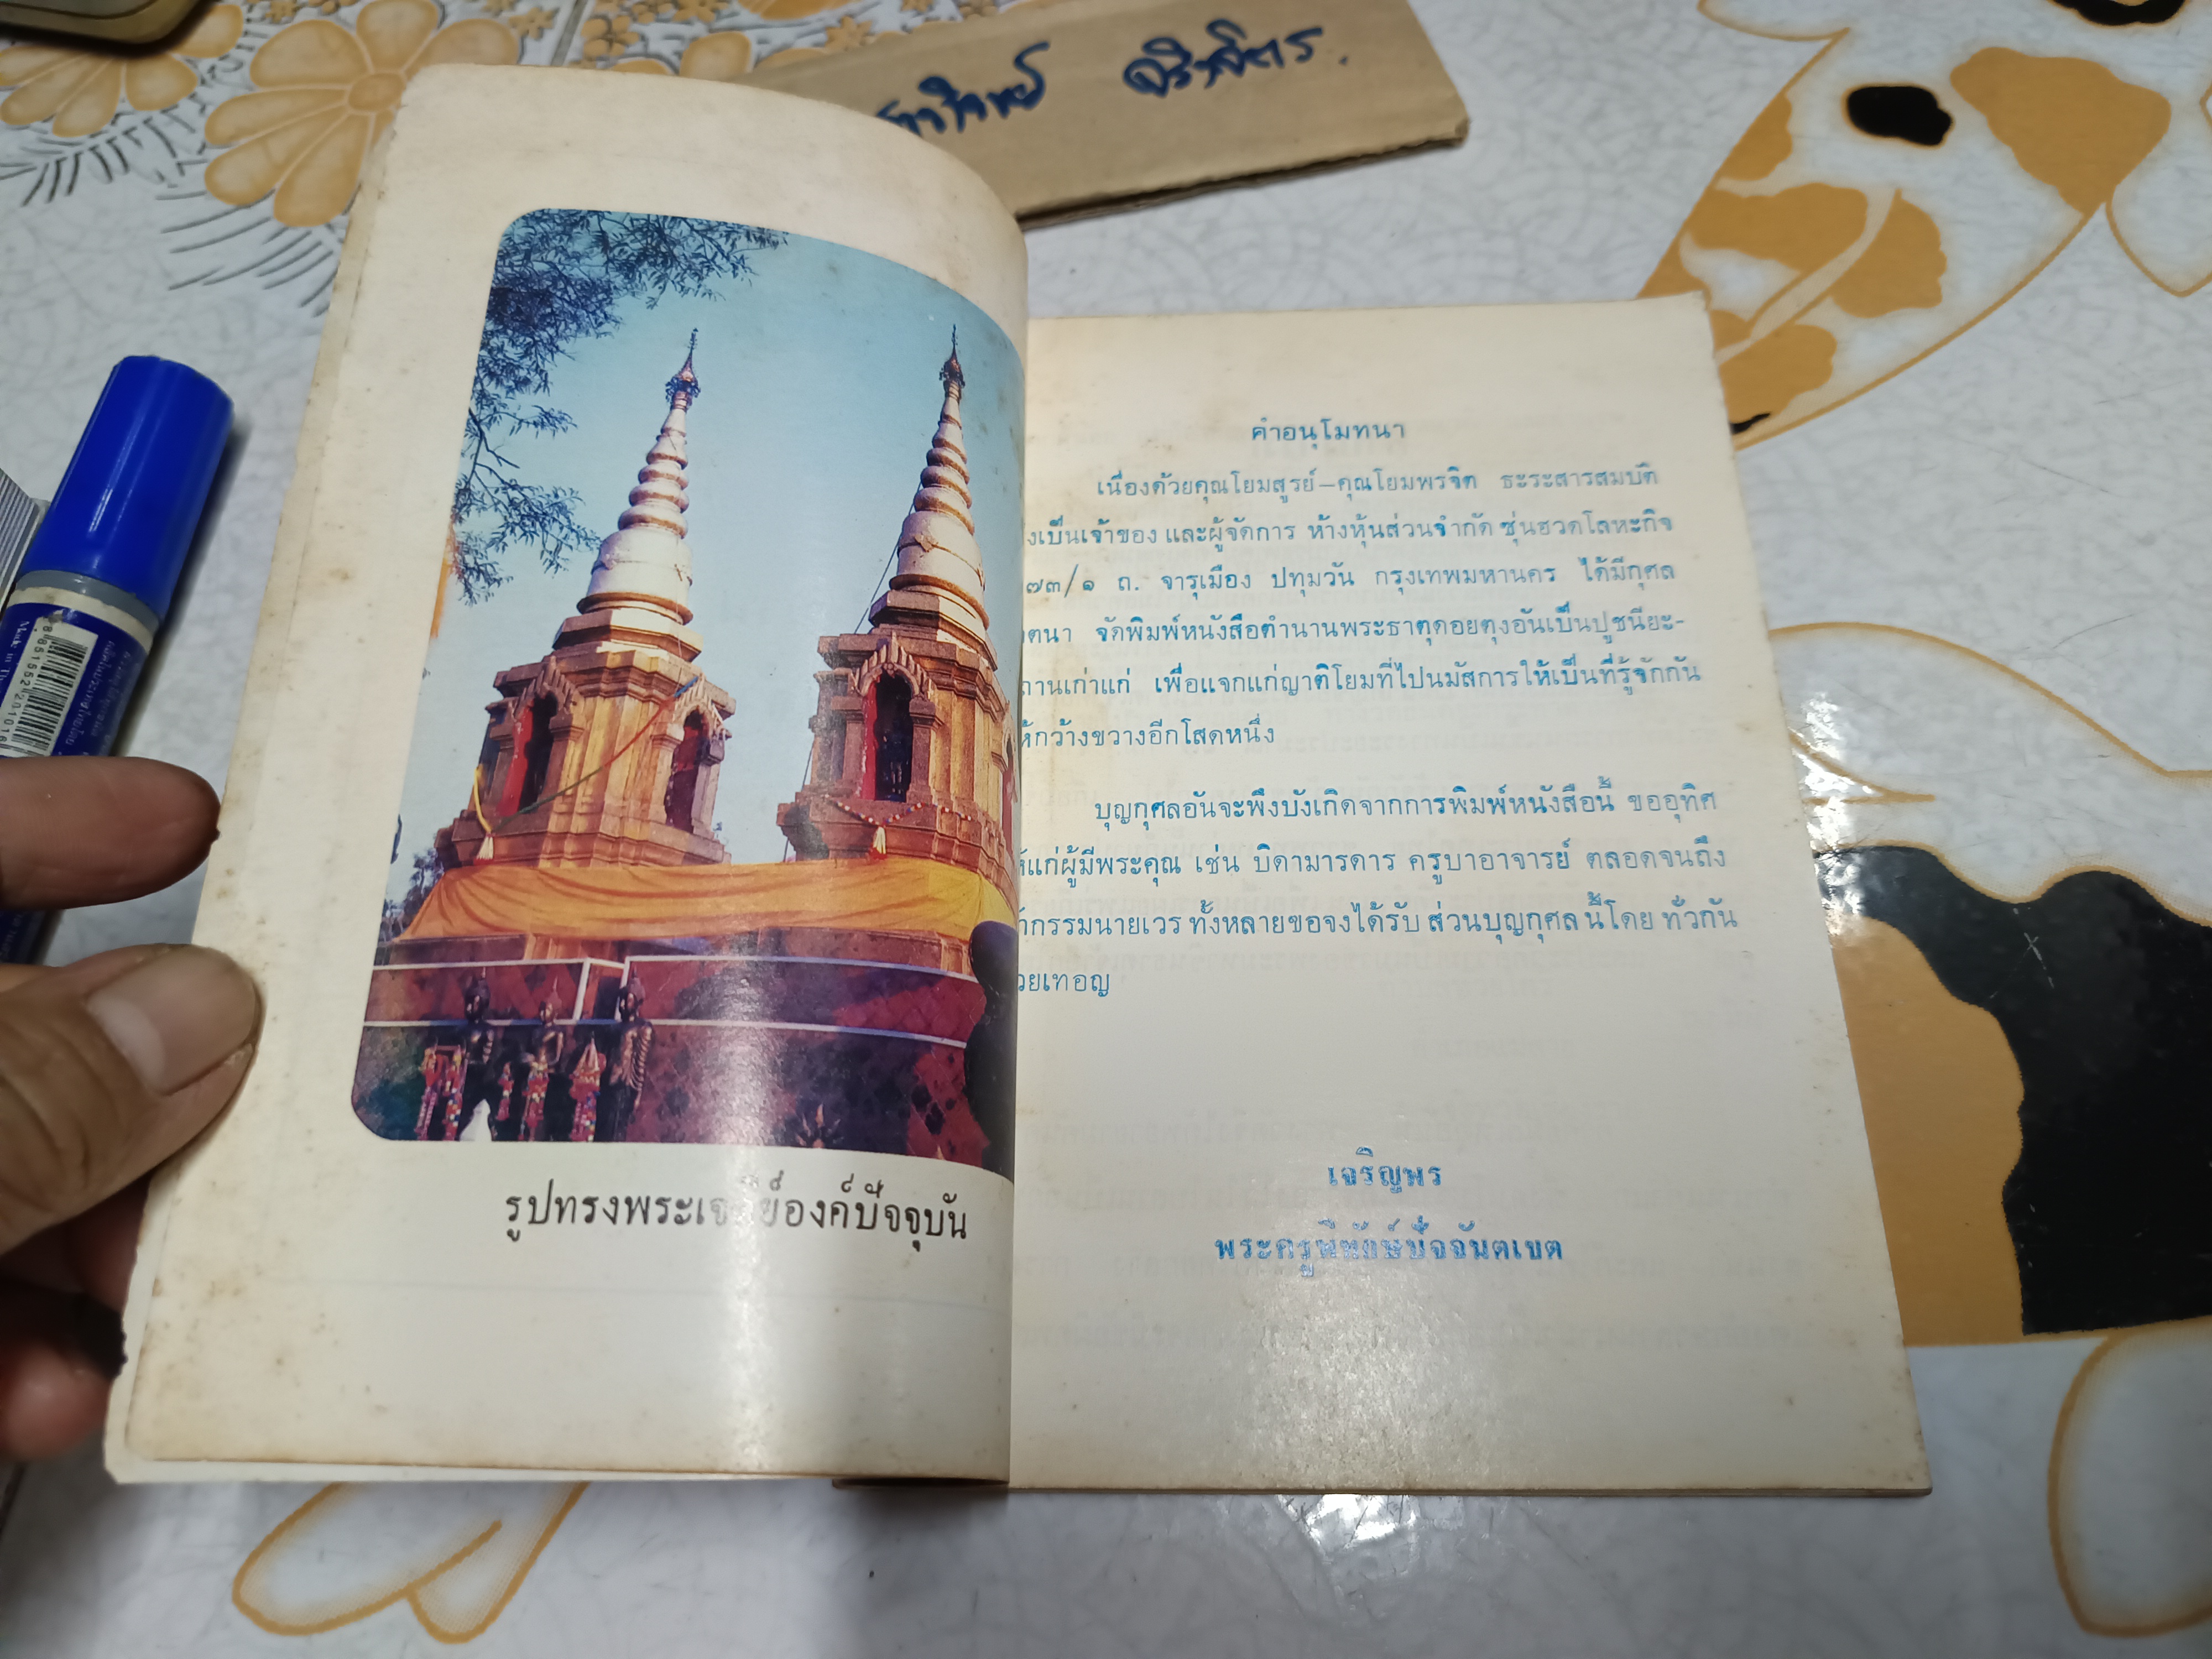 จริงจิตร.
รูปทรงพระเจดีย์องค์ปัจจุบัน
คำอนุโมทนา
เนื่องด้วยคุณโยมสูรย์–คุณโยมพรจิต ธะระสารสมบัติ
งเป็นเจ้าของ และผู้จัดการ ห้างหุ้นส่วนจำกัด ชุ่นฮวดโลหะกิจ
๗๓/๑ ถ. จารุเมือง ปทุมวัน กรุงเทพมหานคร ได้มีกุศล
จตนา จัดพิมพ์หนังสือตำนานพระธาตุดอยตุงอันเป็นปูชนียะ-
ถานเก่าแก่ เพื่อแจกแก่ญาติโยมที่ไปนมัสการให้เป็นที่รู้จักกัน
ห้กว้างขวางอีกโสดหนึ่ง
บุญกุศลอันจะพึงบังเกิดจากการพิมพ์หนังสือนี้ ขออุทิศ
ห้แก่ผู้มีพระคุณ เช่น บิดามารดาร ครูบาอาจารย์ ตลอดจนถึง
จ้ากรรมนายเวร ทั้งหลายขอจงได้รับ ส่วนบุญกุศล นี้โดย ทั่วกัน
วยเทอญ
เจริญพร
พระครูพิทักษ์ปัจจันตเขต